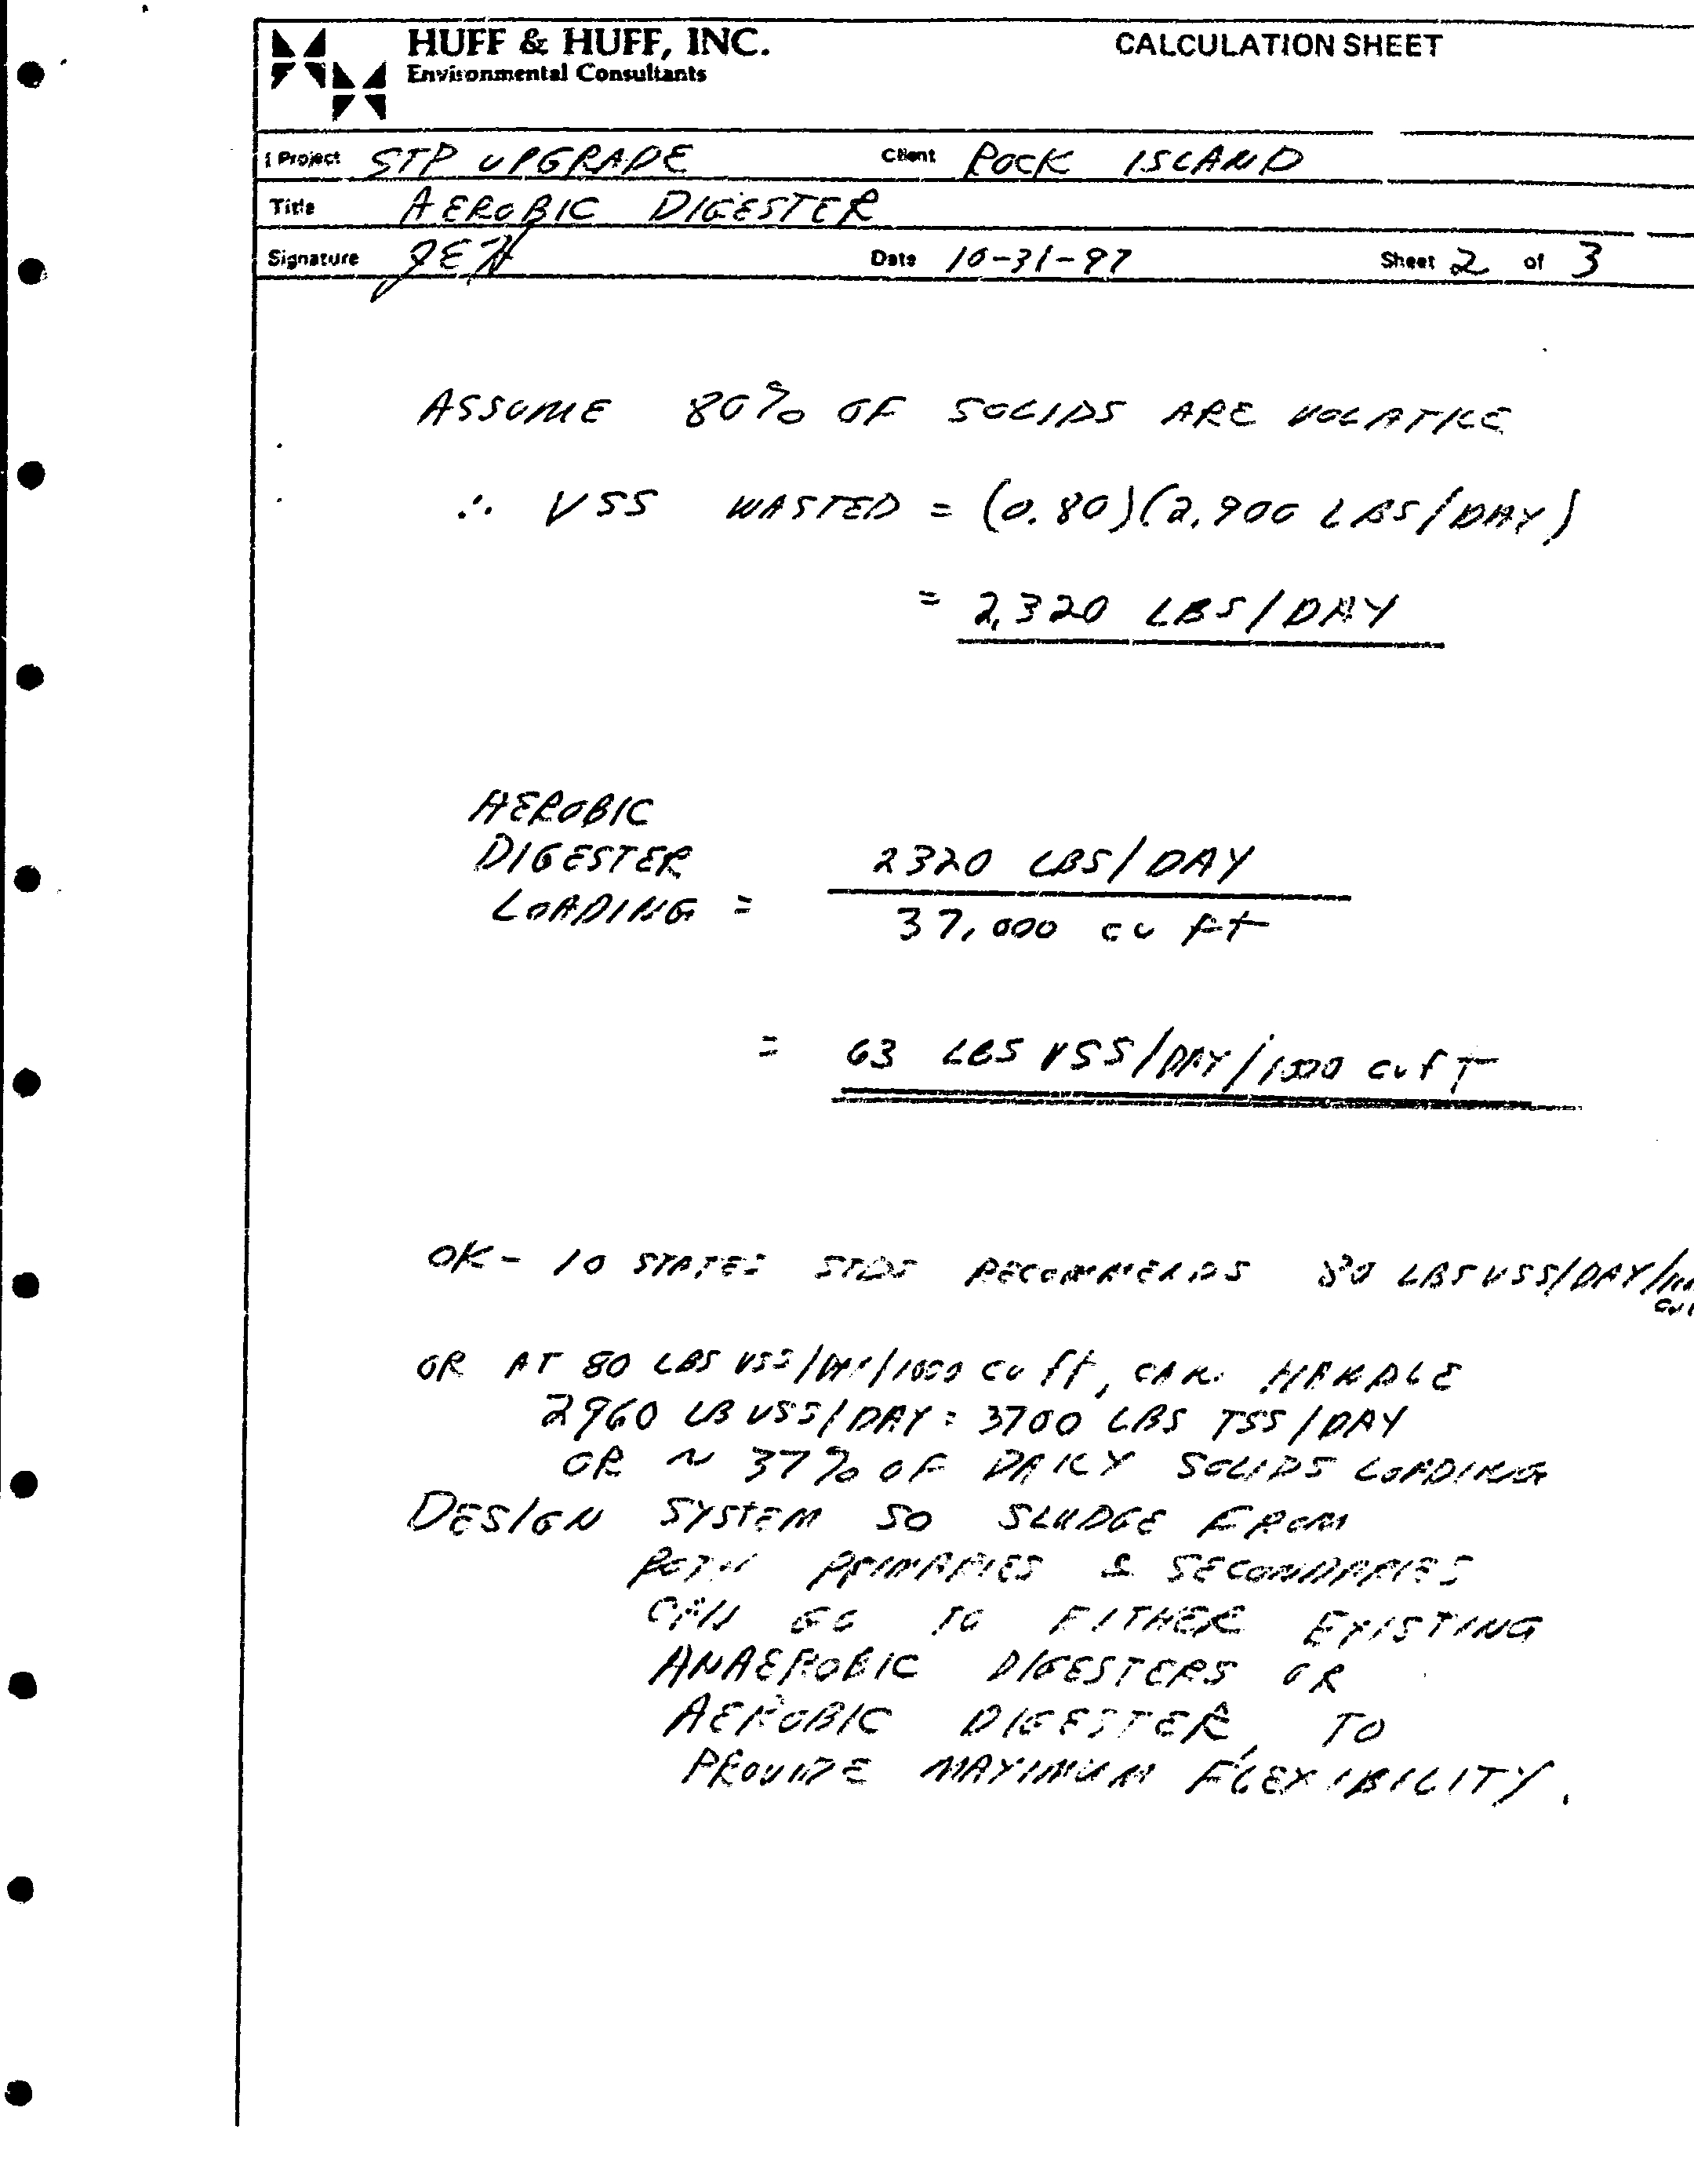 HUFF & HUFF, INC. CALCULATION SHEET
Environmental Consultants
Project STP UPGRADE Client ROCK ISLAND
Title AEROBIC DIGESTER
Signature JEH Date 10-31-97 Sheet 2 of 3
ASSUME 80% OF SOLIDS ARE VOLATILE
∴ VSS WASTED = (0.80)(2,900 LBS/DAY)
= 2,320 LBS/DAY
AEROBIC
DIGESTER 2320 LBS/DAY
LOADING = 37,000 cu ft
= 63 LBS VSS/DAY/1000 cu fT
OK - 10 STATES STDS RECOMMENDS 80 LBS VSS/DAY/
OR AT 80 LBS VSS/DAY/1000 cu ft, CAN HANDLE
2960 LB VSS/DAY = 3700 LBS TSS/DAY
OR ~ 37% OF DAILY SOLIDS LOADING
DESIGN SYSTEM SO SLUDGE FROM
BOTH PRIMARIES & SECONDARIES
CAN GO TO EITHER EXISTING
ANAEROBIC DIGESTERS OR
AEROBIC DIGESTER, TO
PROVIDE MAXIMUM FLEXIBILITY.